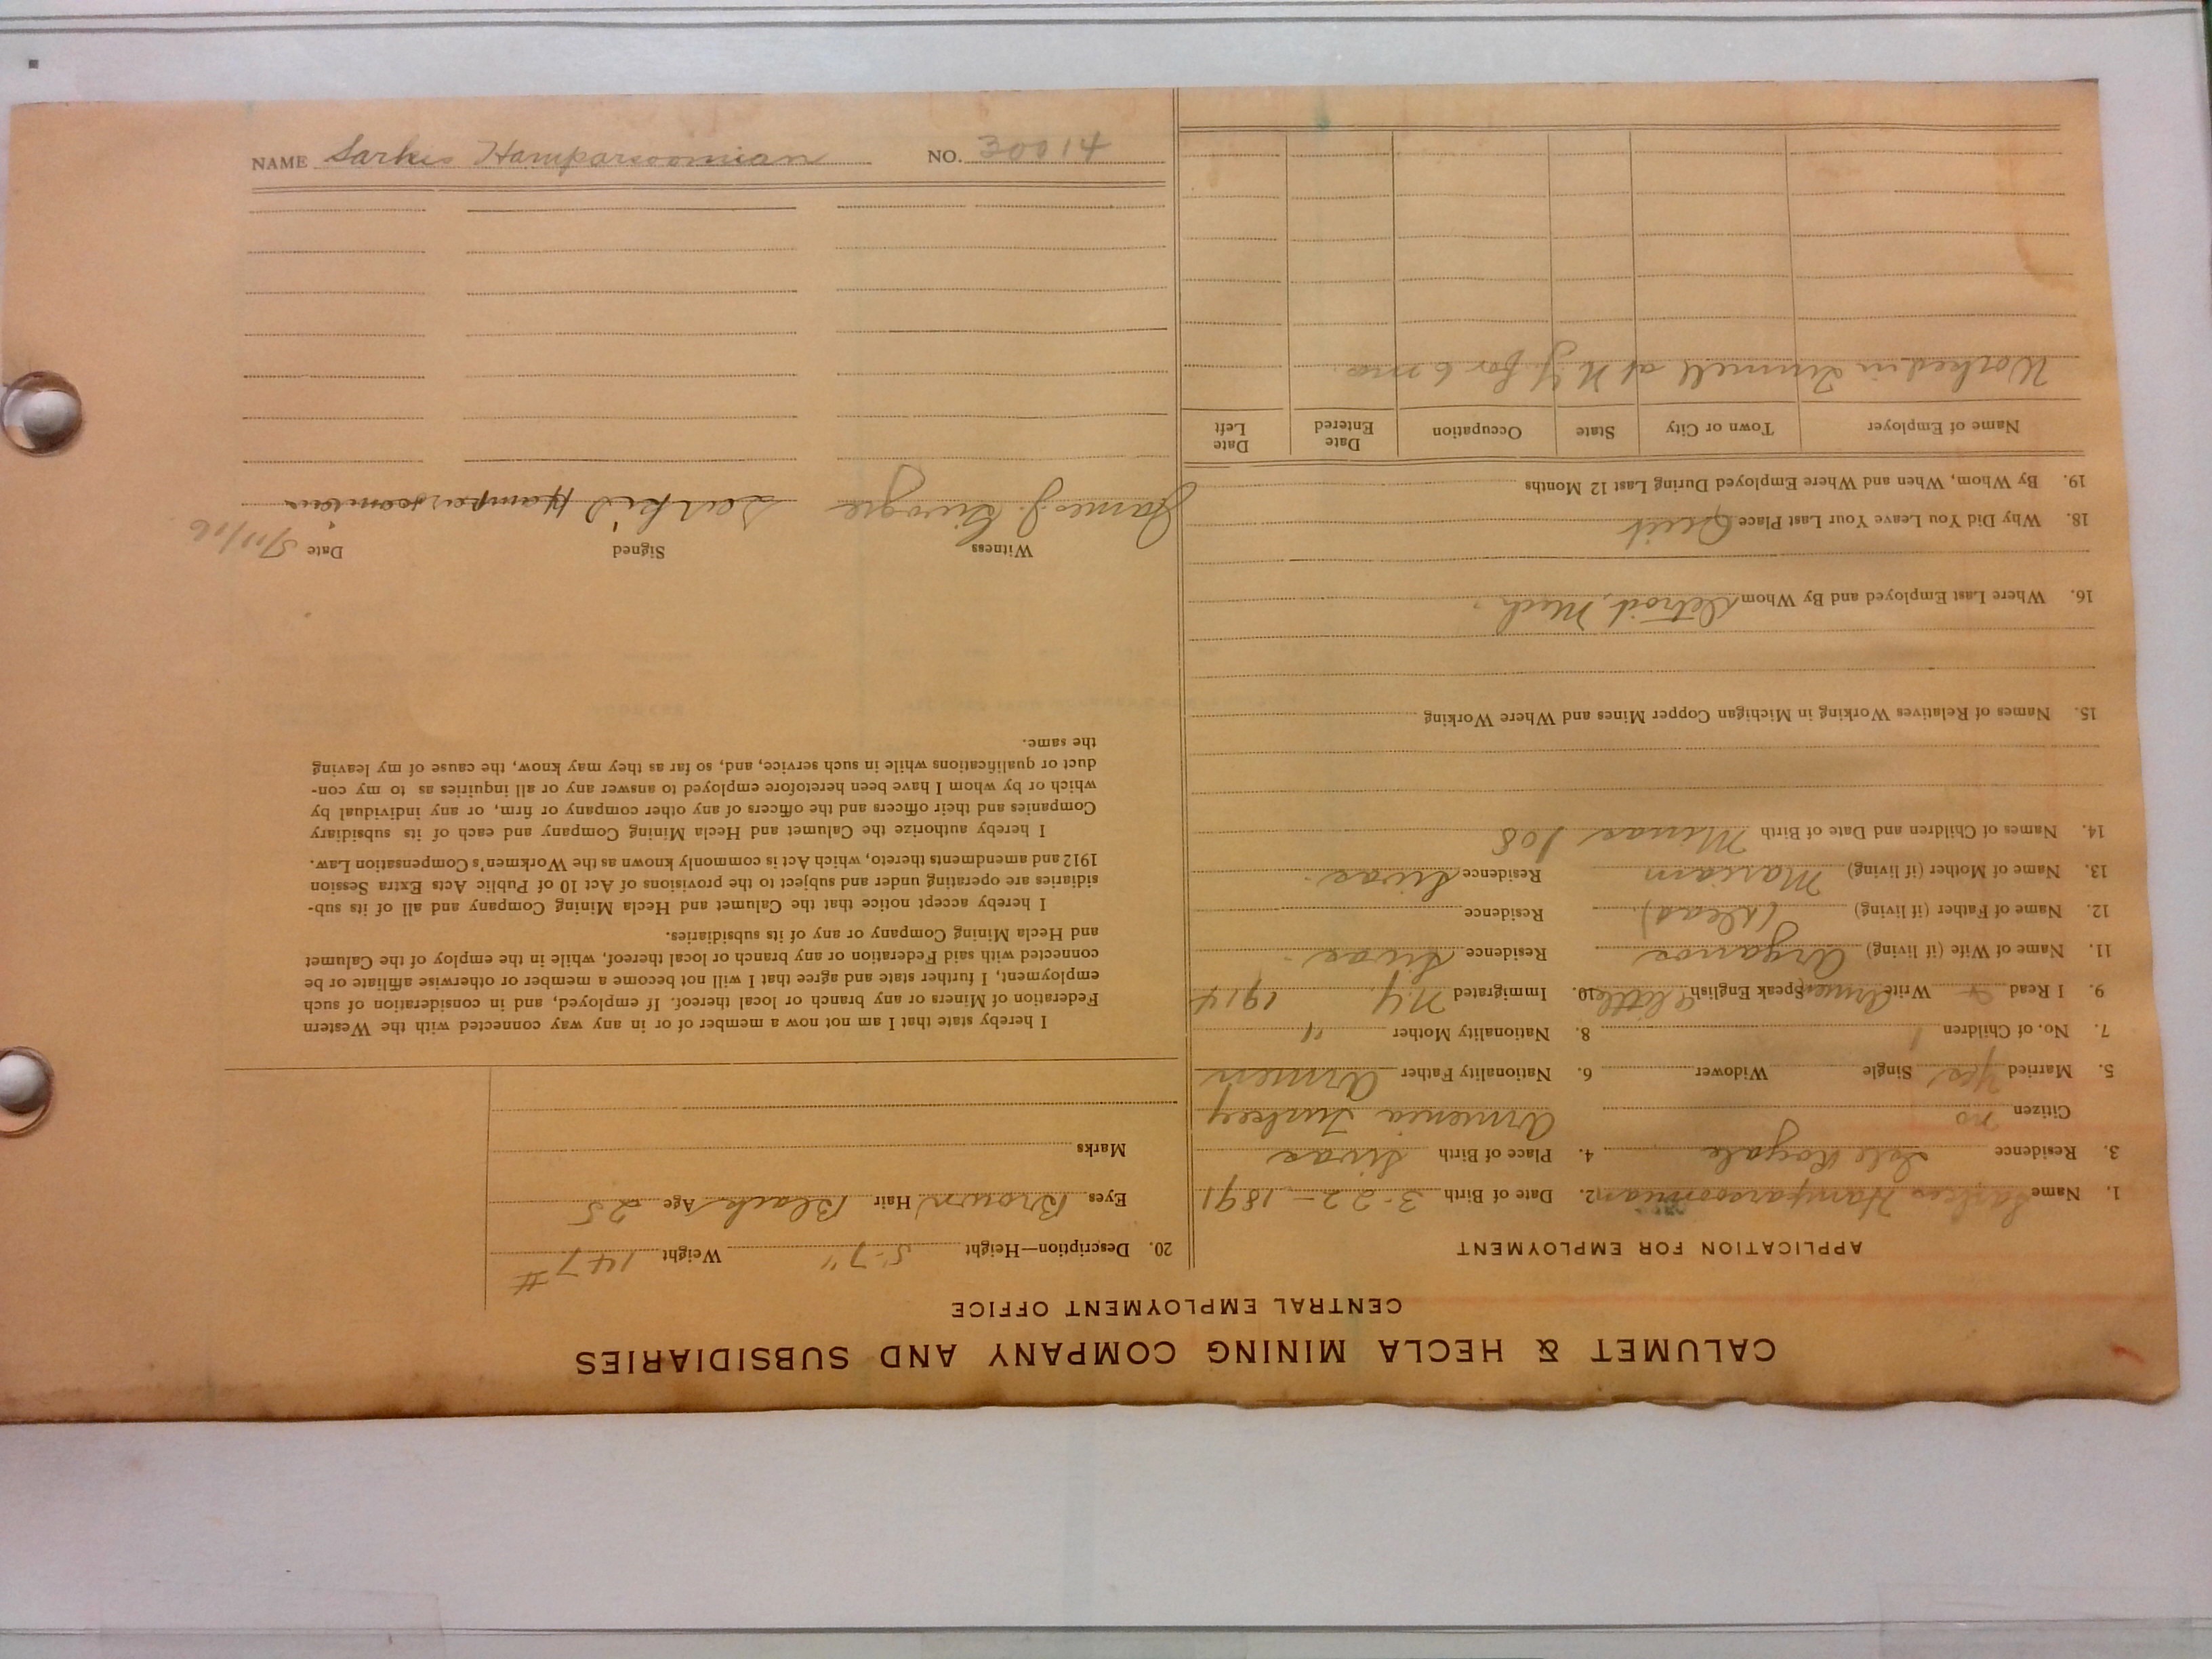 CALUMET & HECLA MINING COMPANY AND SUBSIDIARIES
CENTRAL EMPLOYMENT OFFICE
APPLICATION FOR EMPLOYMENT
1. Name Sarkis Hamparsoomian 2. Date of Birth 3-22-1891
3. Residence Isle Royale 4. Place of Birth Sivas
Citizen no Armenia Turkey
5. Married Yes Single Widower 6. Nationality Father Armen
7. No. of Children 1 8. Nationality Mother "
9. I Read Write Armen Speak English a little 10. Immigrated N.Y. 1914
11. Name of Wife (if living) Residence Sivas
12. Name of Father (if living) (Dead) Residence
13. Name of Mother (if living) Mariam Residence Sivas
14. Names of Children and Date of Birth Minas 108
15. Names of Relatives Working in Michigan Copper Mines and Where Working
16. Where Last Employed and By Whom Detroit, Mich.
18. Why Did You Leave Your Last Place Quit
19. By Whom, When and Where Employed During Last 12 Months
Name of Employer Town or City State Occupation Date Entered Date Left
Worked in Tunnell at N.Y. for 6 mos.
20. Description—Height 5-7" Weight 147 #
Eyes Brown Hair Black Age 25
Marks
I hereby state that I am not now a member of or in any way connected with the Western
Federation of Miners or any branch or local thereof. If employed, and in consideration of such
employment, I further state and agree that I will not become a member or otherwise affiliate or be
connected with said Federation or any branch or local thereof, while in the employ of the Calumet
and Hecla Mining Company or any of its subsidiaries.
I hereby accept notice that the Calumet and Hecla Mining Company and all of its sub-
sidiaries are operating under and subject to the provisions of Act 10 of Public Acts Extra Session
1912 and amendments thereto, which Act is commonly known as the Workmen's Compensation Law.
I hereby authorize the Calumet and Hecla Mining Company and each of its subsidiary
Companies and their officers and the officers of any other company or firm, or any individual by
which or by whom I have been heretofore employed to answer any or all inquiries as to my con-
duct or qualifications while in such service, and, so far as they may know, the cause of my leaving
the same.
Witness Signed Date
James J. Sarkis Hamparsoomian
NAME Sarkis Hamparsoomian NO. 30014